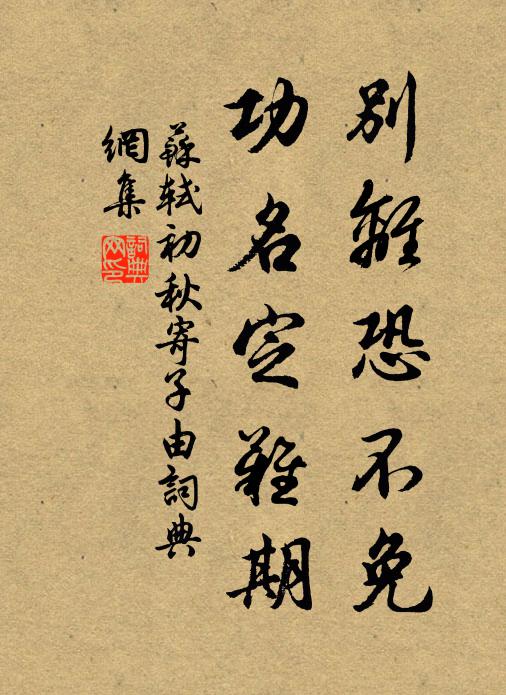 別離恐不免
功名定難期
蘇軾初秋寄子由詞典
網集
詞典
网印